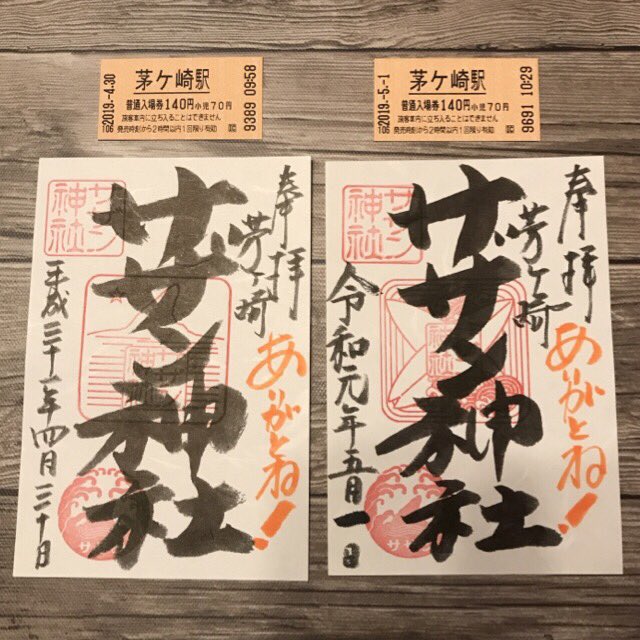 茅ケ崎駅
普通入場券 140円 小児70円
旅客車内に立ち入ることはできません
発売時刻から2時間以内1回限り有効
2019.-4.30
106
9389 09:58
茅ケ崎駅
普通入場券 140円 小児70円
旅客車内に立ち入ることはできません
発売時刻から2時間以内1回限り有効
2019.-5.-1
106
9691 10:29
奉拝
茅ヶ崎
サザン神社
サザン神社
平成三十一年四月三十日
ありがとね!
奉拝
茅ヶ崎
サザン神社
サザン神社
令和元年五月一日
ありがとね!